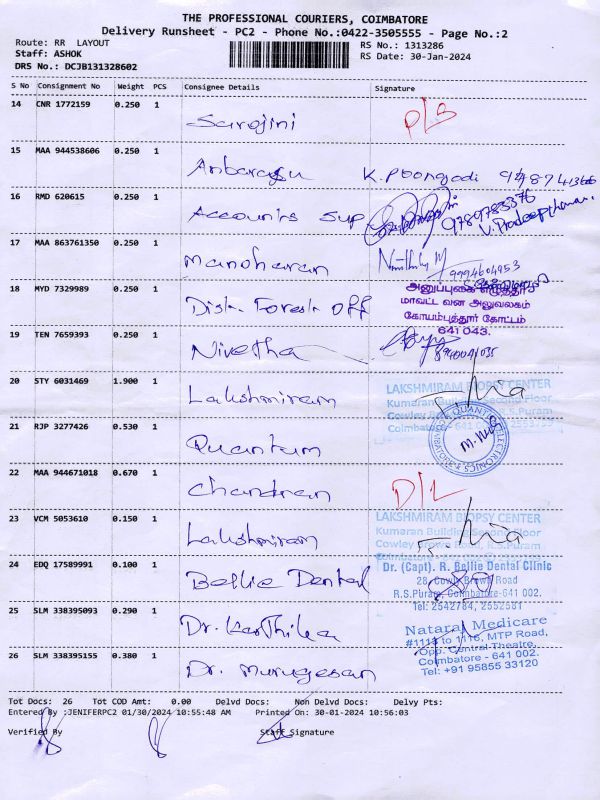 THE PROFESSIONAL COURIERS, COIMBATORE
Delivery Runsheet - PC2 - Phone No.:0422-3505555 - Page No.:2
Route: RR LAYOUT
RS No.: 1313286
Staff: ASHOK
RS Date: 30-Jan-2024
DRS No.: DCJB131328602
S No Consignment No Weight PCS Consignee Details Signature
14 CNR 1772159 0.250 1 Sarojini
15 MAA 944538606 0.250 1 Anbarasu K. Poongodi
16 RMD 620615 0.250 1 Accounts Sup 9789783376
V. Pradeepkumar
17 MAA 863761350 0.250 1 Manoharan 9994604953
18 MYD 7329989 0.250 1 Dist. Forest Off
மாவட்ட வன அலுவலகம்
கோயம்புத்தூர் கோட்டம்
641 043.
19 TEN 7659393 0.250 1 Nivetha 8940041035
20 STY 6031469 1.900 1 Lakshmiram
LAKSHMIRAM BIOPSY CENTER
Kumaran Building Second Floor
Cowley Brown Road, R.S.Puram
Coimbatore - 641 002
21 RJP 3277426 0.530 1 Quantum
22 MAA 944671018 0.670 1 Chandran D/L
23 VCM 5053610 0.150 1 Lakshmiram
LAKSHMIRAM BIOPSY CENTER
Kumaran Building Second Floor
Cowley Brown Road, R.S.Puram
24 EDQ 17589991 0.100 1 Bellie Dental
Dr. (Capt). R. Bellie Dental Clinic
28, Cowly Brown Road
R.S.Puram, Coimbatore-641 002.
Tel: 2542784, 2552581
25 SLM 338395093 0.290 1 Dr. Karthika
Nataraj Medicare
#1114 to 1116, MTP Road,
Opp. Central Theatre,
Coimbatore - 641 002.
Tel: +91 95855 33120
26 SLM 338395155 0.380 1 Dr. Murugesan
Tot Docs: 26 Tot COD Amt: 0.00 Delvd Docs: Non Delvd Docs: Delvy Pts:
Entered By :JENIFERPC2 01/30/2024 10:55:48 AM Printed On: 30-01-2024 10:56:03
Verified By Staff Signature